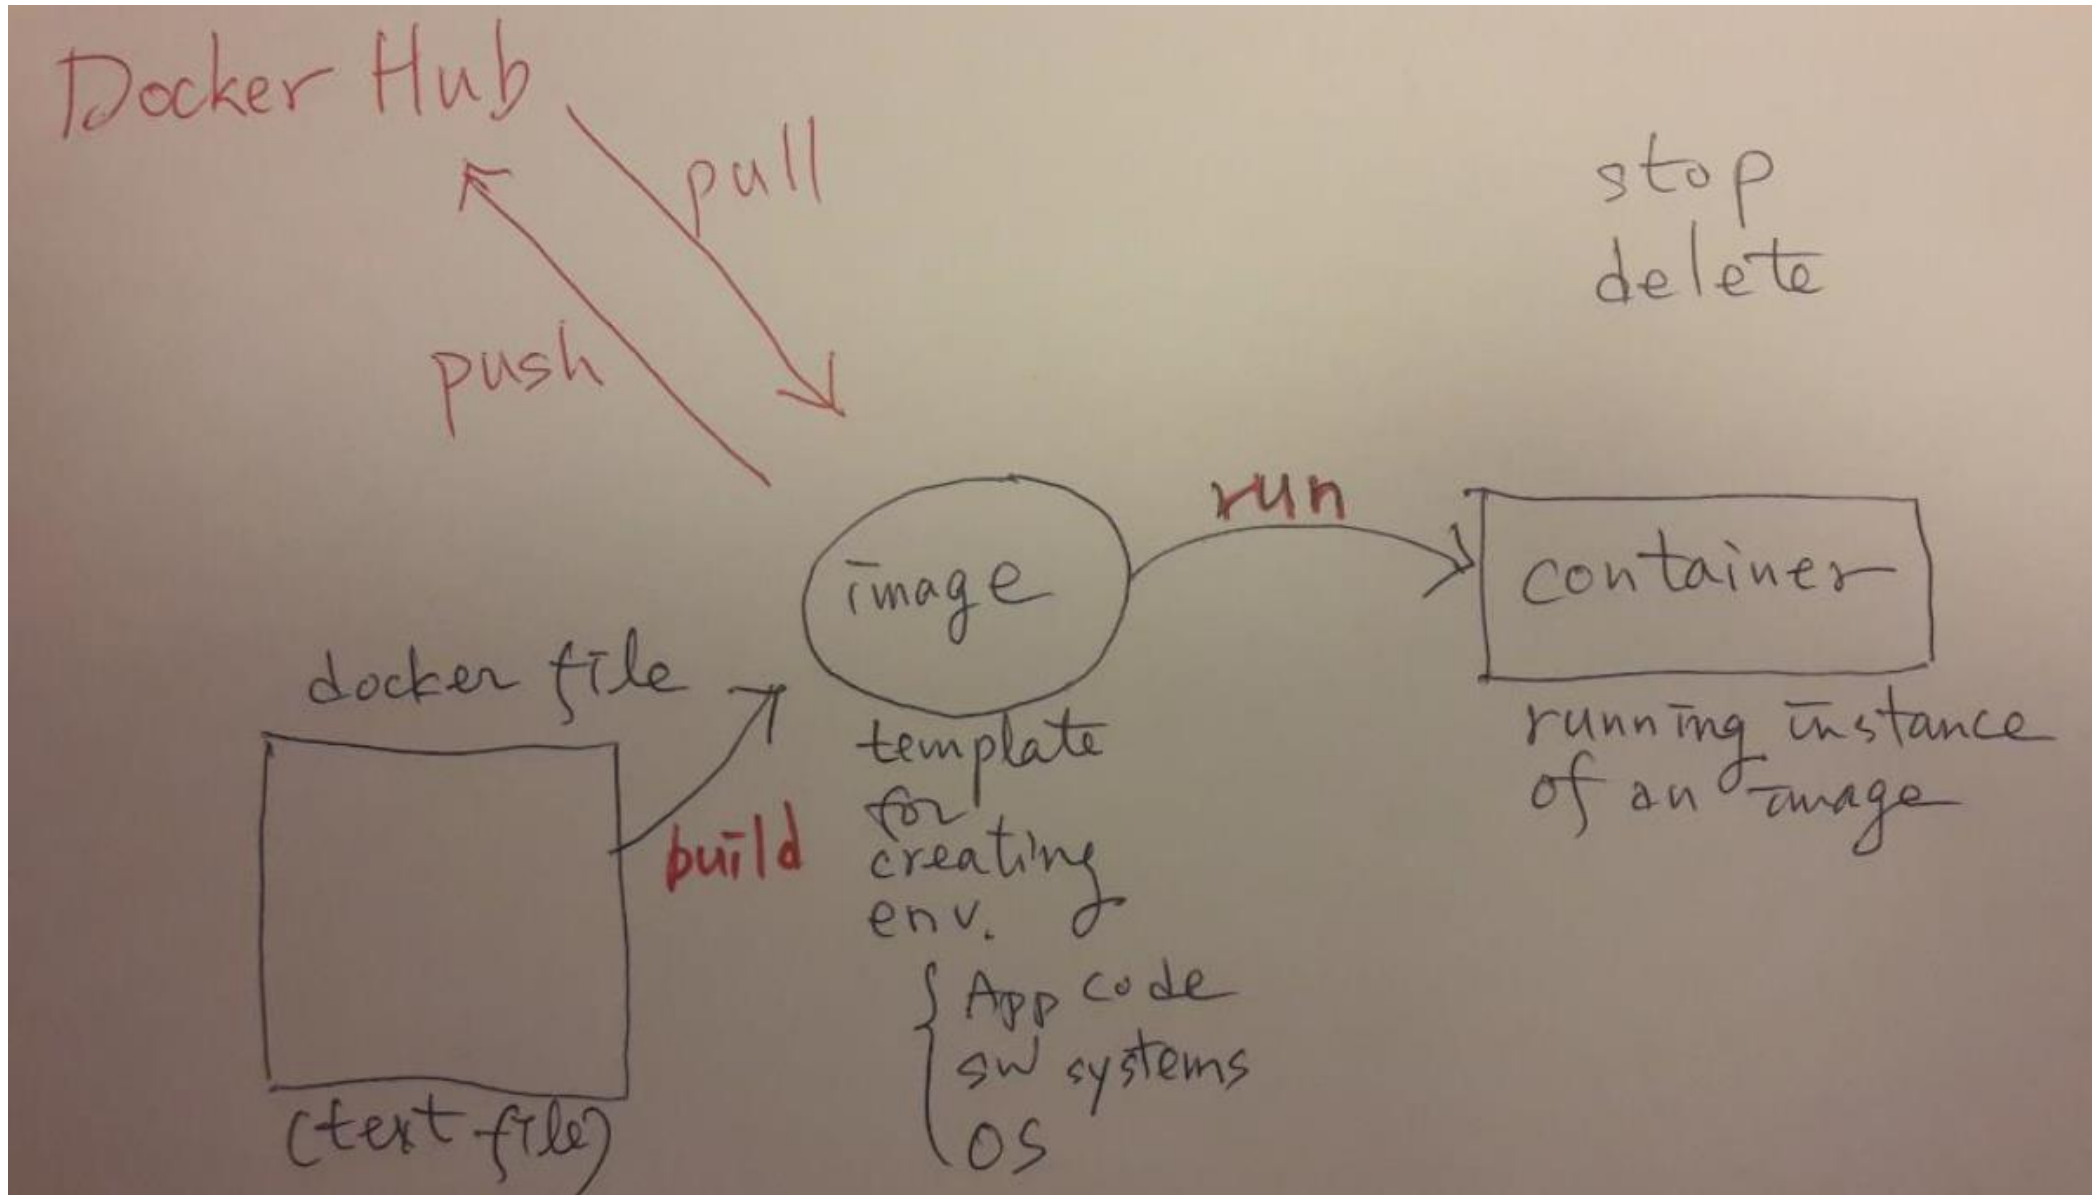 Docker Hub
pull
push
stop
delete
run
image
container
docker file
build
template
for
creating
env.
App code
SW systems
OS
running instance
of an image
(text file)